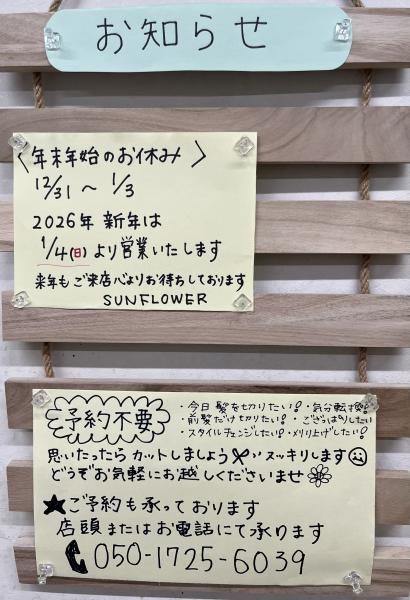 お知らせ
〈年末年始のお休み〉
12/31 〜 1/3
2026年 新年は
1/4(日)より営業いたします
来年もご来店心よりお待ちしております
SUNFLOWER
予約不要
・今日髪を切りたい! ・気分転換!
・前髪だけ切りたい! ・さっぱりしたい
・スタイルチェンジしたい! ・刈り上げしたい!
思いたったらカットしましょう スッキリします
どうぞお気軽にお越しくださいませ
★ご予約も承っております
店頭またはお電話にて承ります
050-1725-6039